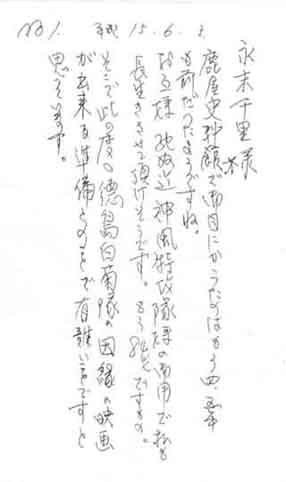 No 1. 平成 15. 6. 3.
永末千里様
鹿屋史料館で御目にかゝったのはもう四、五年
も前だったようですね。
お互様 死ぬ迄 神風特攻隊様の御用で私も
長生きさせて頂けそうです。もう 84才ですもの。
そこで此の度の徳島白菊隊の因縁の映画
が出来る準備とのことで有難いことですと
思います。